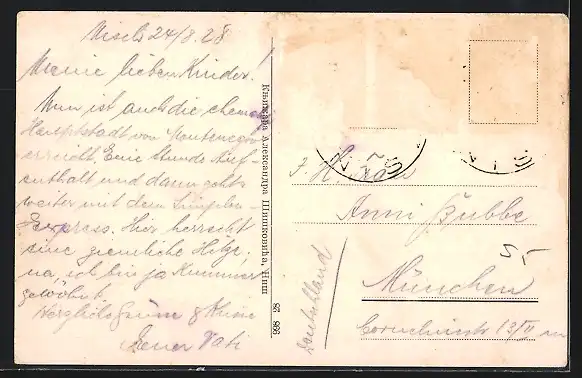 Nisch 24/8.28
Meine lieben Kinder!
Nun ist auch die ehem.
Hauptstadt von Montenegro
erreicht. Eine Stunde Auf-
enthalt und dann gehts
weiter mit dem
Express. Hier herrscht
eine ziemliche Hitze,
na, ich bin ja Kummer
gewöhnt.
Herzliche Grüsse & Küsse
Euer Vati
Књижара Александра Шишковића, Ниш
998 28
Anni Bubbe
München
13/II
Deutschland